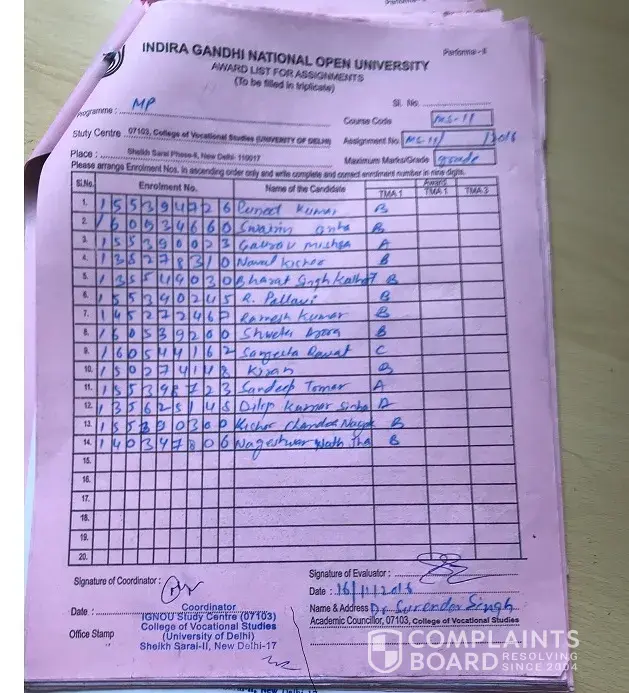 INDIRA GANDHI NATIONAL OPEN UNIVERSITY
Performa - II
AWARD LIST FOR ASSIGNMENTS
(To be filled in triplicate)
Sl. No.
Programme : MP
Course Code MS-11
Stuty Centre : 07103, College of Vocational Studies (UNIVERSITY OF DELHI)
Assignment No. MS-11/ /2016
Place : Sheikh Sarai Phase-II, New Delhi- 110017
Maximum Marks/Grade grade
Please arrange Enrolment Nos. in ascending order only and write complete and correct enrolment number in nine digits.
Sl.No. Enrolment No. Name of the Candidate Award
TMA 1 TMA 1 TMA 3
1. 155394726 Puneet Kumar B
2. 160534660 B
3. 155390023 Gaurav Mishra A
4. 135278310 Naval Kishor B
5. 135549030 Bharat Singh B
6. 155390245 R. Pallavi B
7. 145272467 Ramesh Kumar B
8. 160539200 Shweta Arora B
9. 160544162 Sangeeta Rawat C
10. 150274148 Kiran B
11. 155398723 Sandeep Tomar A
12. 135625148 Dilip Kumar Sinha A
13. 155390300 Kishor Chandra B
14. 140347806 Nageshwar Nath Jha B
15.
16.
17.
18.
19.
20.
Signature of Coordinator :
Signature of Evaluator :
Date : 16/11/2016
Date :
Coordinator
IGNOU Study Centre (07103)
College of Vocational Studies
(University of Delhi)
Sheikh Sarai-II, New Delhi-17
Name & Address Dr Surender Singh
Academic Councillor, 07103, College of Vocational Studies
Office Stamp
COMPLAINTS
BOARD RESOLVING
SINCE 2004